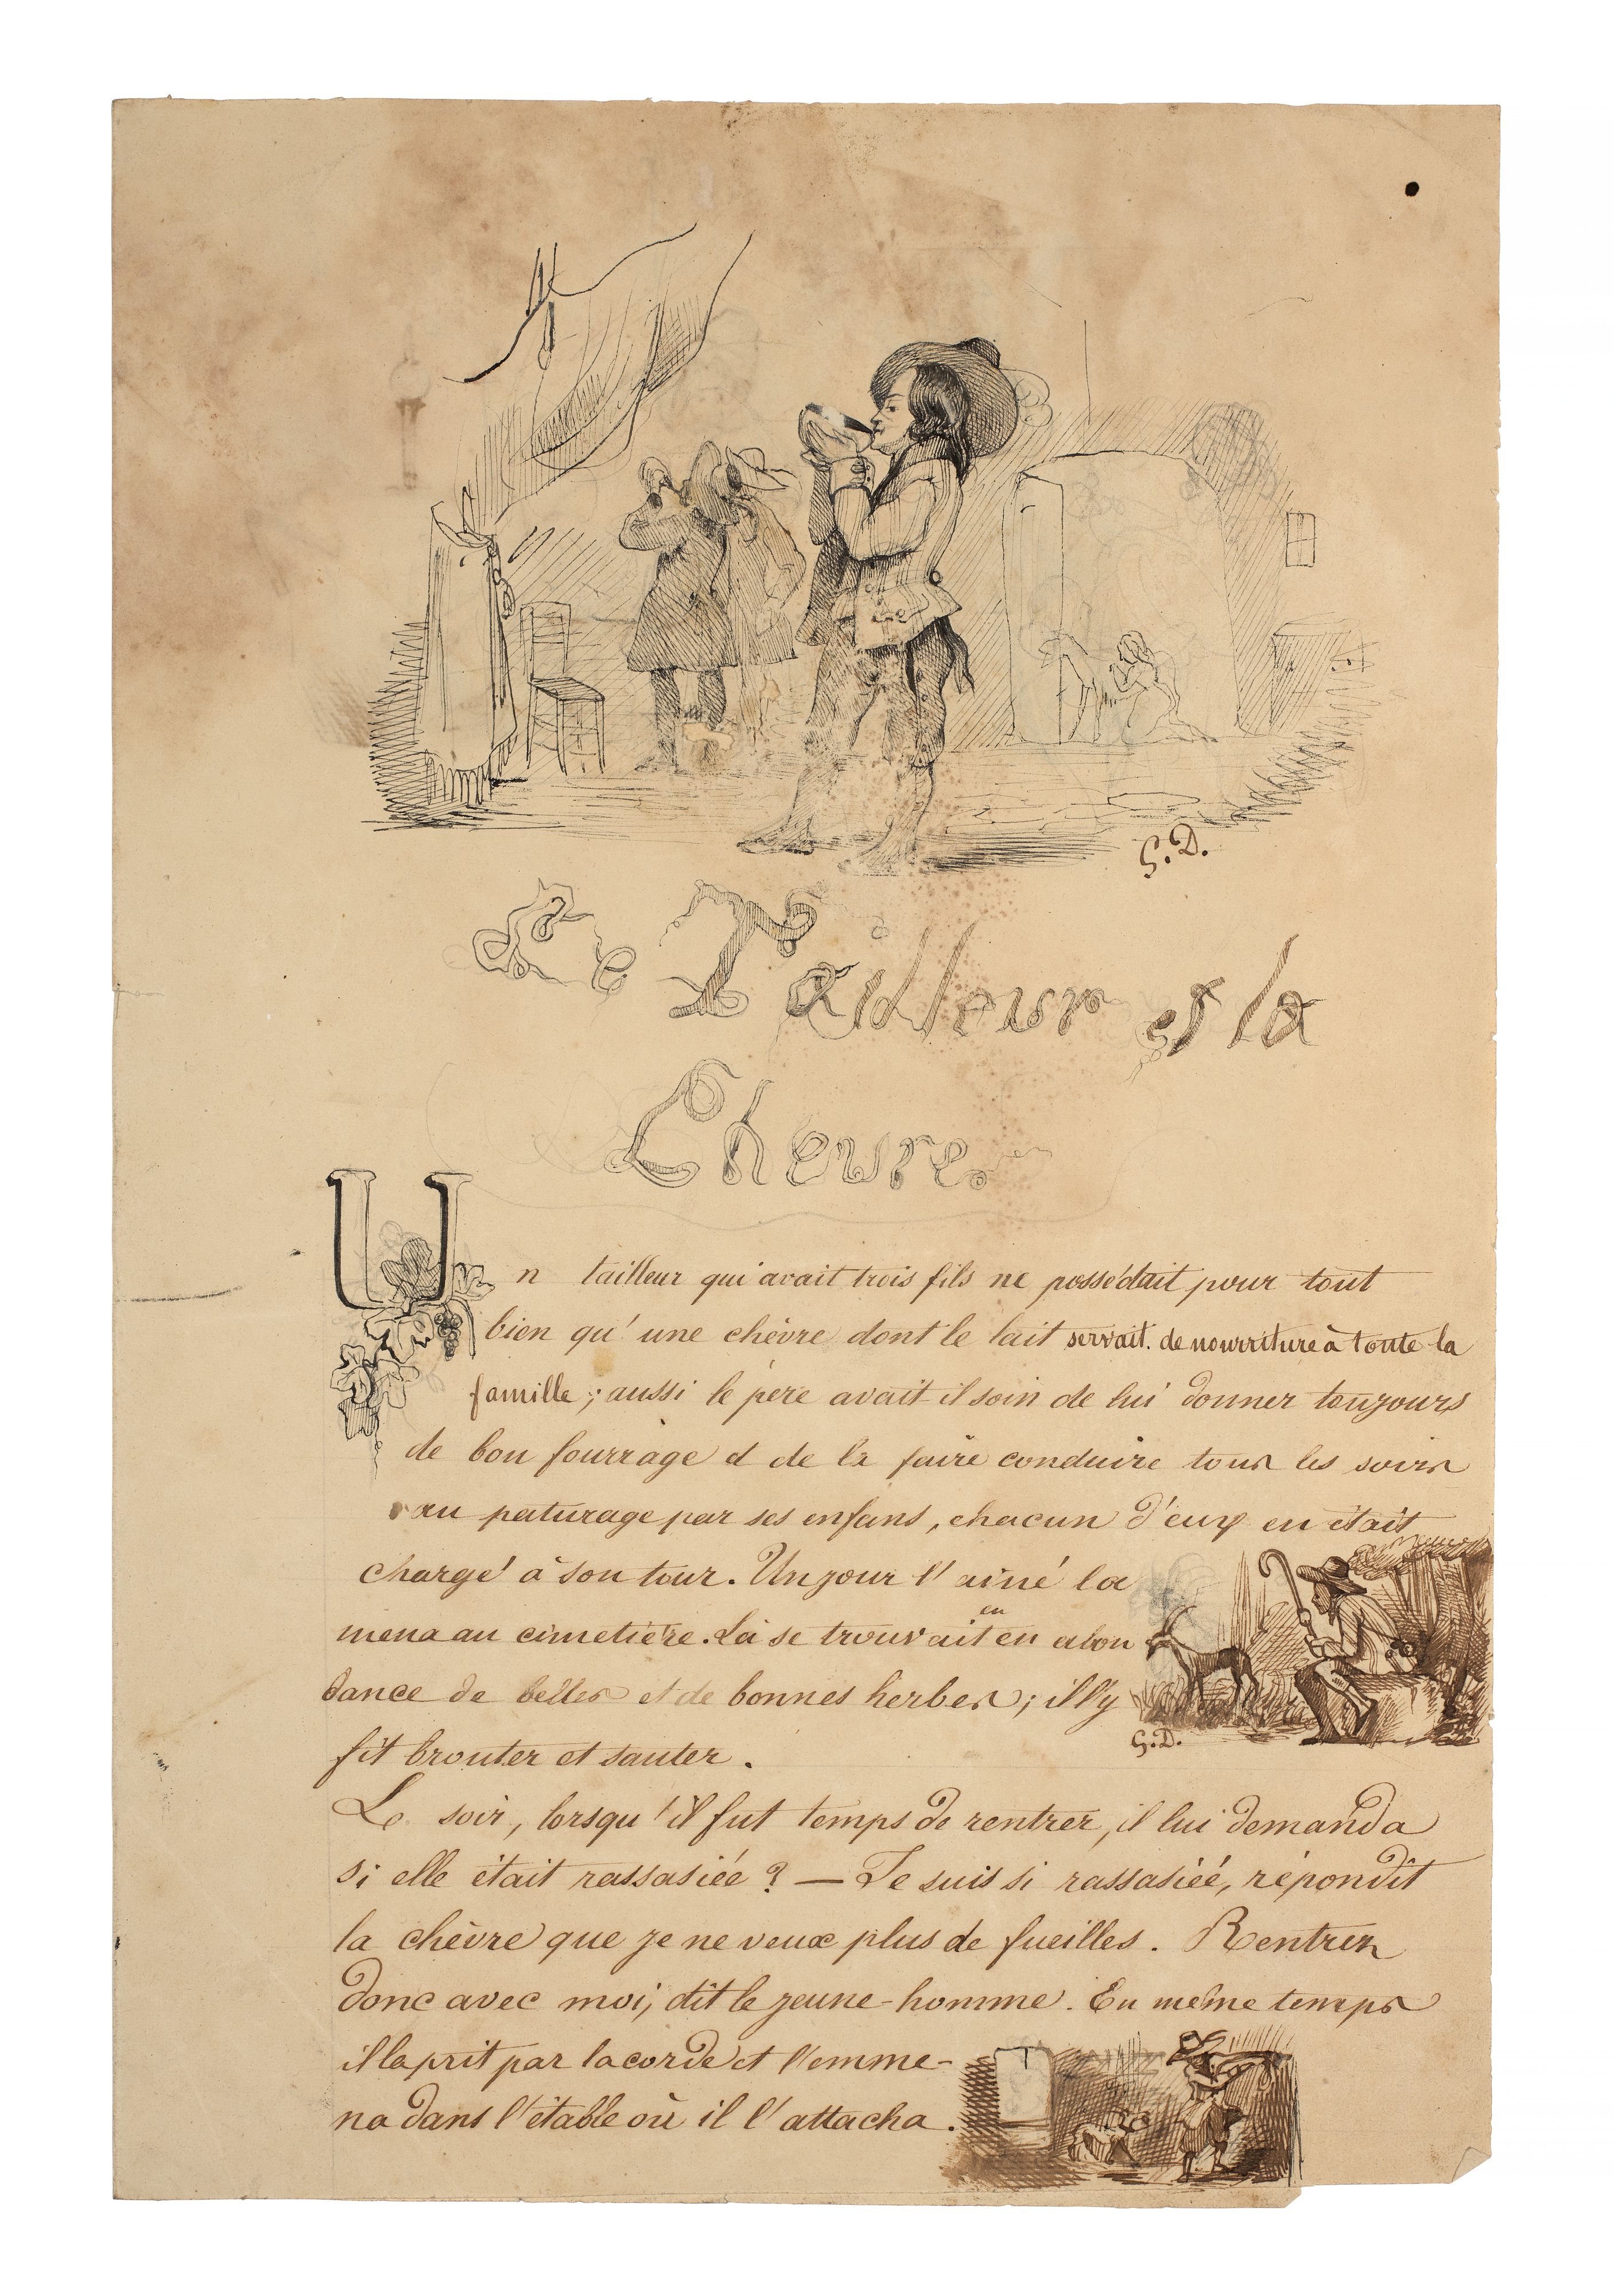 G.D.
Le Tailleur et la
Chevre
Un tailleur qui avait trois fils ne possédait pour tout
bien qu'une chèvre dont le lait servait de nourriture à toute la
famille ; aussi le père avait il soin de lui donner toujours
de bon fourrage et de la faire conduire tous les soirs
au paturage par ses enfans, chacun d'eux en était
chargé à son tour. Un jour l'ainé la
en
mena au cimetière. Là se trouvait en abon
dance de belles et de bonnes herbes ; il l'y
G.D.
fit brouter et sauter.
Le soir, lorsqu'il fut temps de rentrer, il lui demanda
si elle était rassasiée ? — Je suis si rassasiéé, répondit
la chèvre que je ne veux plus de fueilles. Rentrez
donc avec moi, dit le jeune-homme. En même temps
il la prit par la corde et l'emme-
na dans l'étable où il l'attacha.